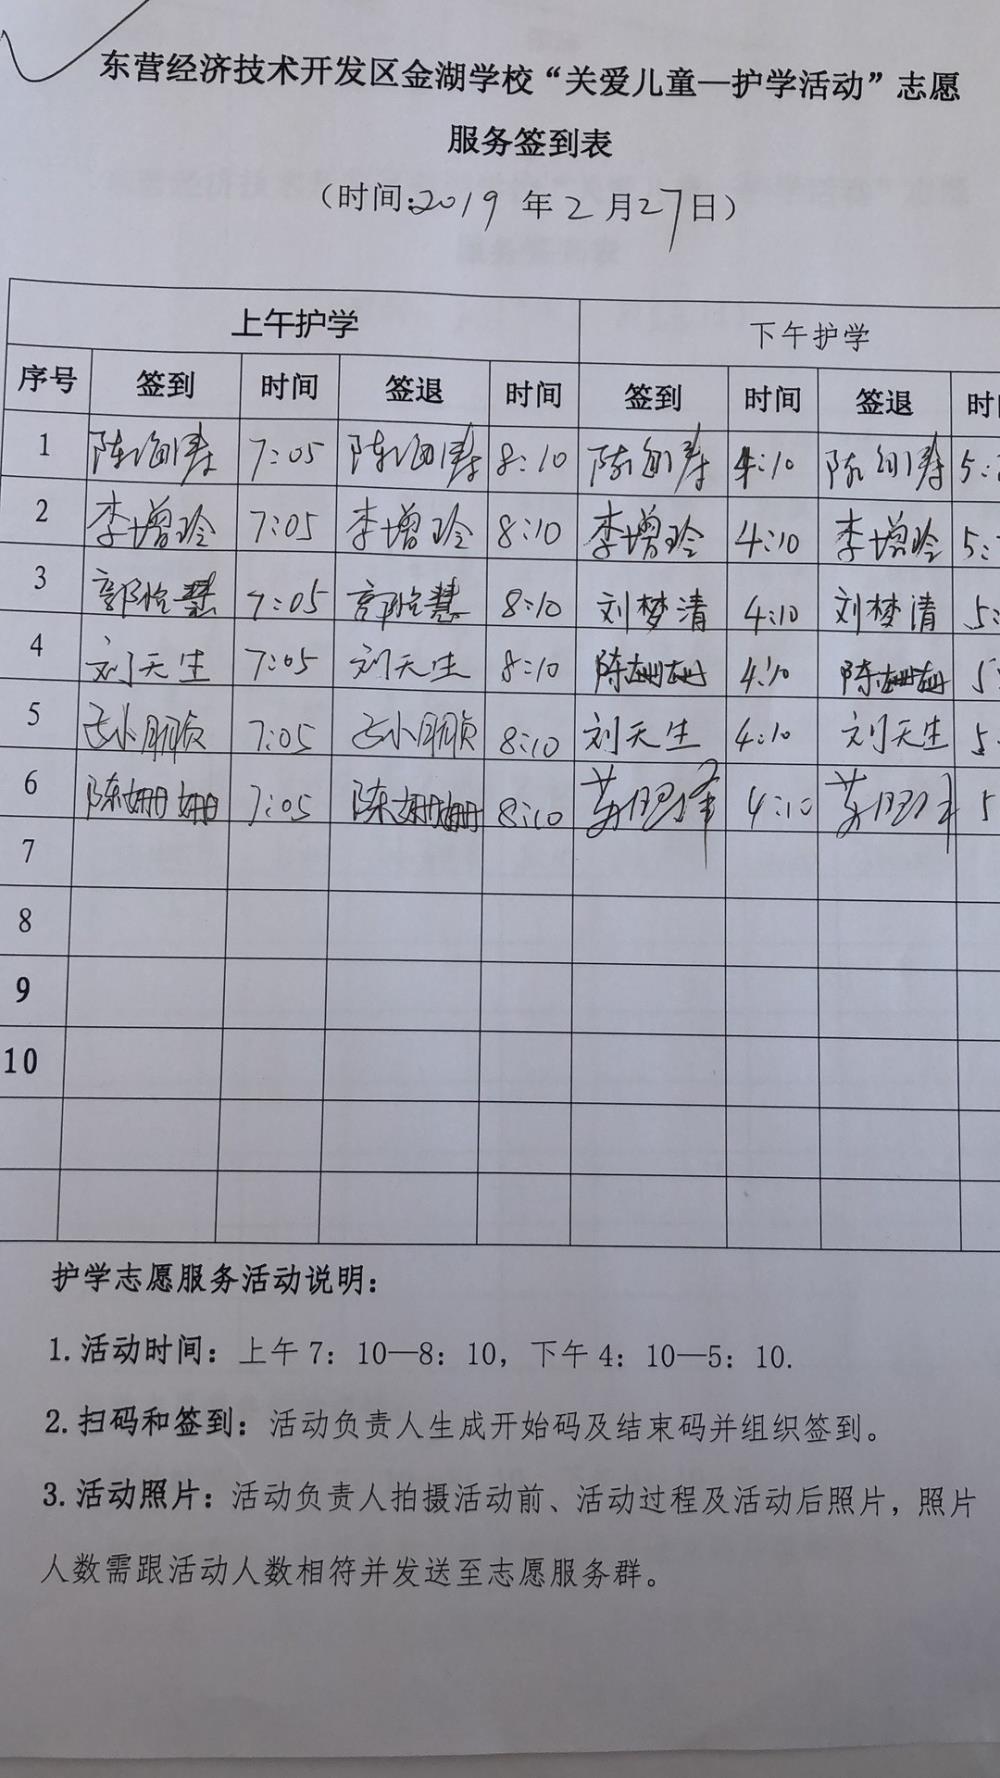 东营经济技术开发区金湖学校“关爱儿童—护学活动”志愿
服务签到表
（时间:2019年2月27日）
上午护学 下午护学
序号 签到 时间 签退 时间 签到 时间 签退
1 7:05 8:10 4:10
2 李增玲 7:05 李增玲 8:10 李增玲 4:10 李增玲
3 7:05 8:10 刘梦清 4:10 刘梦清
4 刘天生 7:05 刘天生 8:10 陈姗姗 4:10 陈姗姗
5 7:05 8:10 刘天生 4:10 刘天生
6 陈姗姗 7:05 陈姗姗 8:10 4:10
7
8
9
10
护学志愿服务活动说明：
1.活动时间：上午7：10—8：10，下午4：10—5：10.
2.扫码和签到：活动负责人生成开始码及结束码并组织签到。
3.活动照片：活动负责人拍摄活动前、活动过程及活动后照片，照片
人数需跟活动人数相符并发送至志愿服务群。